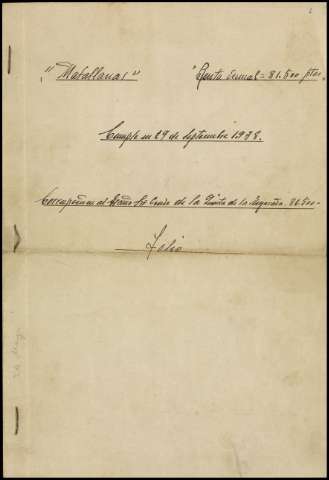 "Matallanas" "Renta anual = 81.500 ptas"
Cumple en 29 de Septiembre 1938.
Corresponden al Excmo Sr Conde de la Quinta de la Enjarada. 81.500-
Folio